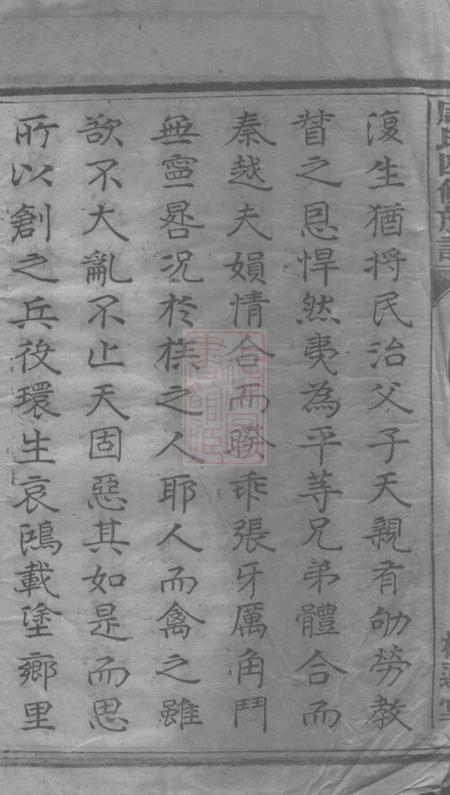 復生猶捋民治父子天親有劬勞教
誨之恩悍然夷為平等兄弟體合而
秦越夫婦情合而睽乖張牙厲角鬥
無寧晷況於族之人耶人而禽之雖
欲不大亂不止天固惡其如是而思
所以創之兵役環生哀鴻載塗鄉里